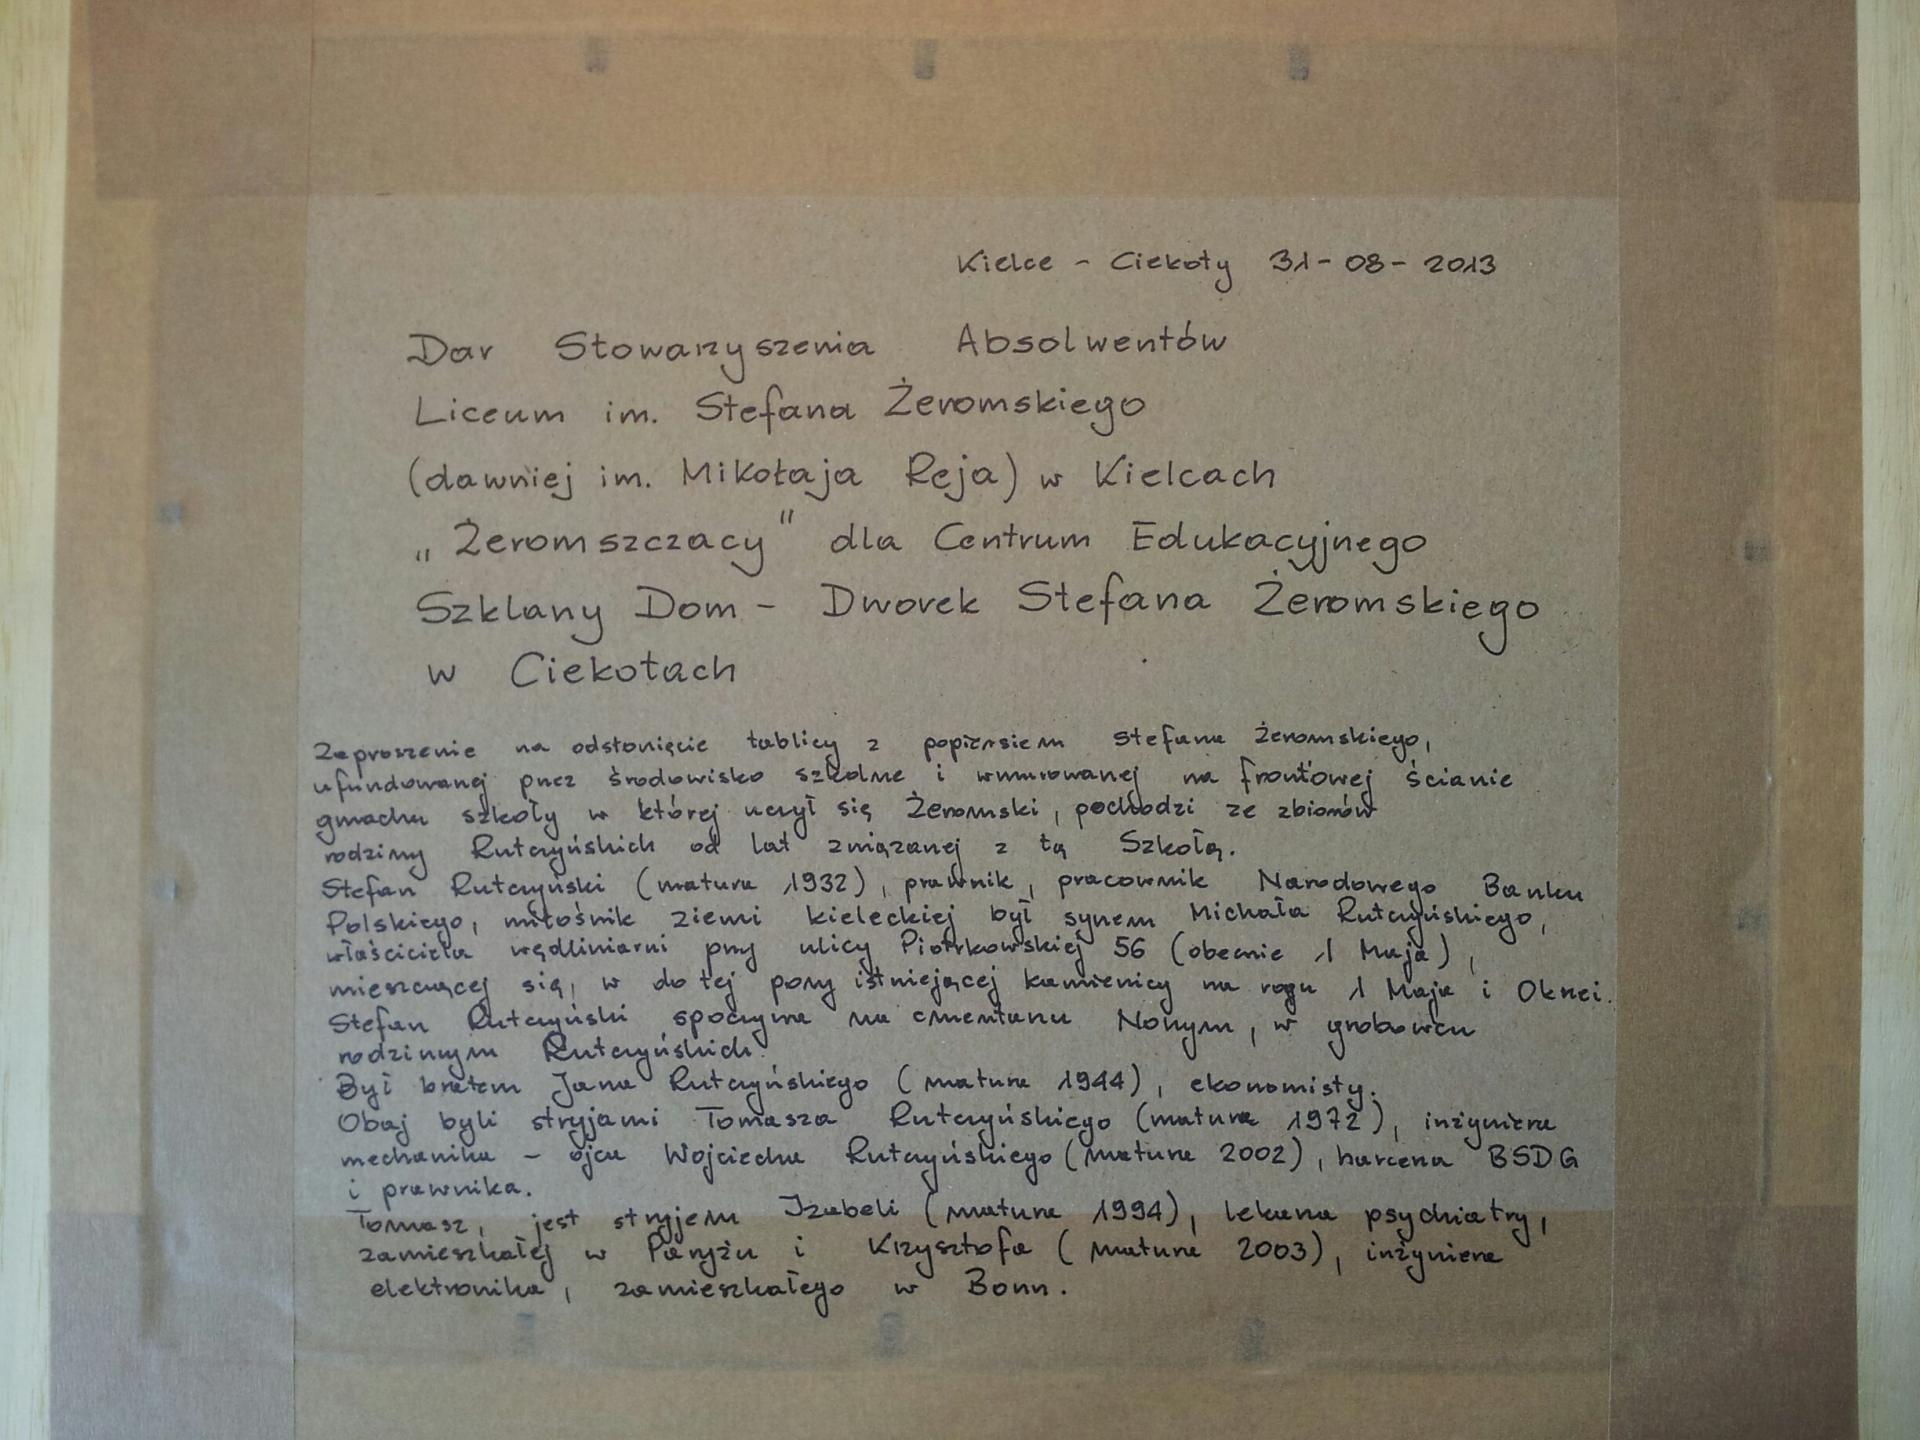 Kielce - Ciekoty 31-08-2013
Dar Stowarzyszenia Absolwentów
Liceum im. Stefana Żeromskiego
(dawniej im. Mikołaja Reja) w Kielcach
„Żeromszczacy" dla Centrum Edukacyjnego
Szklany Dom - Dworek Stefana Żeromskiego
w Ciekotach
Zaproszenie na odsłonięcie tablicy z popiersiem Stefana Żeromskiego,
ufundowanej przez środowisko szkolne i wmurowanej na frontowej ścianie
gmachu szkoły w której uczył się Żeromski, pochodzi ze zbiorów
rodziny Rutczyńskich od lat związanej z tą Szkołą.
Stefan Rutczyński (matura 1932), prawnik, pracownik Narodowego Banku
Polskiego, miłośnik ziemi kieleckiej był synem Michała Rutczyńskiego,
właściciela wędliniarni przy ulicy Piotrkowskiej 56 (obecnie 1 Maja),
mieszczącej się, w do tej pory istniejącej kamienicy na rogu 1 Maja i Okrzei.
Stefan Rutczyński spoczywa na cmentarzu Nowym, w grobowcu
rodzinnym Rutczyńskich.
Był bratem Jana Rutczyńskiego (matura 1944), ekonomisty.
Obaj byli stryjami Tomasza Rutczyńskiego (matura 1972), inżyniera
mechanika - ojca Wojciecha Rutczyńskiego (matura 2002), harcerza BSDG
i prawnika.
Tomasz, jest stryjem Izabeli (matura 1994), lekarza psychiatry,
zamieszkałej w Paryżu i Krzysztofa (matura 2003), inżyniera
elektronika, zamieszkałego w Bonn.